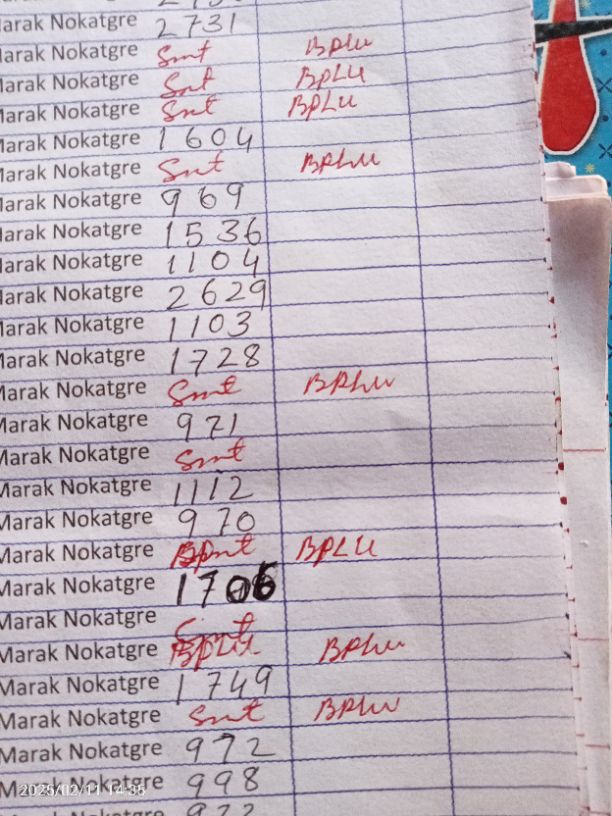 Marak Nokatgre 2731
Marak Nokatgre Smt BPLU
Marak Nokatgre Smt BPLU
Marak Nokatgre Smt BPLU
Marak Nokatgre 1604
Marak Nokatgre Smt BPLU
Marak Nokatgre 969
Marak Nokatgre 1536
Marak Nokatgre 1104
Marak Nokatgre 2629
Marak Nokatgre 1103
Marak Nokatgre 1728
Marak Nokatgre Smt BPLU
Marak Nokatgre 971
Marak Nokatgre Smt
Marak Nokatgre 1112
Marak Nokatgre 970
Marak Nokatgre BPLU
Marak Nokatgre 1706
Marak Nokatgre Smt
Marak Nokatgre BPLU BPLU
Marak Nokatgre 1749
Marak Nokatgre Smt BPLU
Marak Nokatgre 972
Marak Nokatgre 998
2025/02/11 14:35